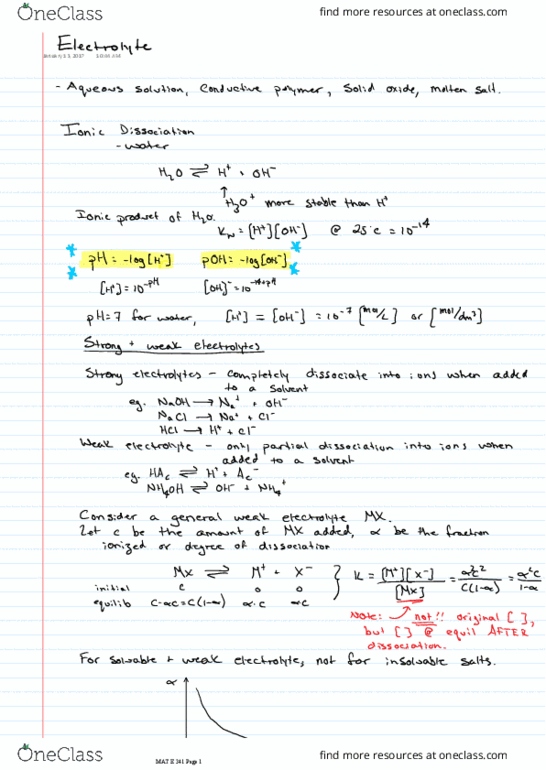 OneClass
find more resources at oneclass.com
Electrolyte
- Aqueous solution, Conductive polymer, Solid oxide, molten salt.
Ionic Dissociation
- water
H₂O ⇌ H⁺ + OH⁻
↑
H₃O⁺ more stable than H⁺
Ionic product of H₂O.
Kw = [H⁺][OH⁻] @ 25°C = 10⁻¹⁴
pH = -log[H⁺] pOH = -log[OH⁻]
[H⁺] = 10^-pH [OH]⁻ = 10^-14+pH
pH = 7 for water, [H⁺] = [OH⁻] = 10⁻⁷ [mol/L] or [mol/dm³]
Strong + weak electrolytes
Strong electrolytes - completely dissociate into ions when added
to a solvent
eg. NaOH → Na⁺ + OH⁻
NaCl → Na⁺ + Cl⁻
HCl → H⁺ + Cl⁻
Weak electrolyte - only partial dissociation into ions when
added to a solvent
eg. HAc ⇌ H⁺ + Ac⁻
NH₄OH ⇌ OH⁻ + NH₄⁺
Consider a general weak electrolyte MX.
Let c be the amount of MX added, α be the fraction
ionized or degree of dissociation
MX ⇌ M⁺ + X⁻ } K = [M⁺][X⁻]/[MX] = α²c²/C(1-α) = α²c/1-α
initial C 0 0
equilib C-αC = C(1-α) α·C αC
Note: not!! original [ ],
but [ ] @ equil AFTER
dissociation.
For solvable + weak electrolyte, not for insolvable salts.
α
OneClass
MAT E 341 Page 1
find more resources at oneclass.com